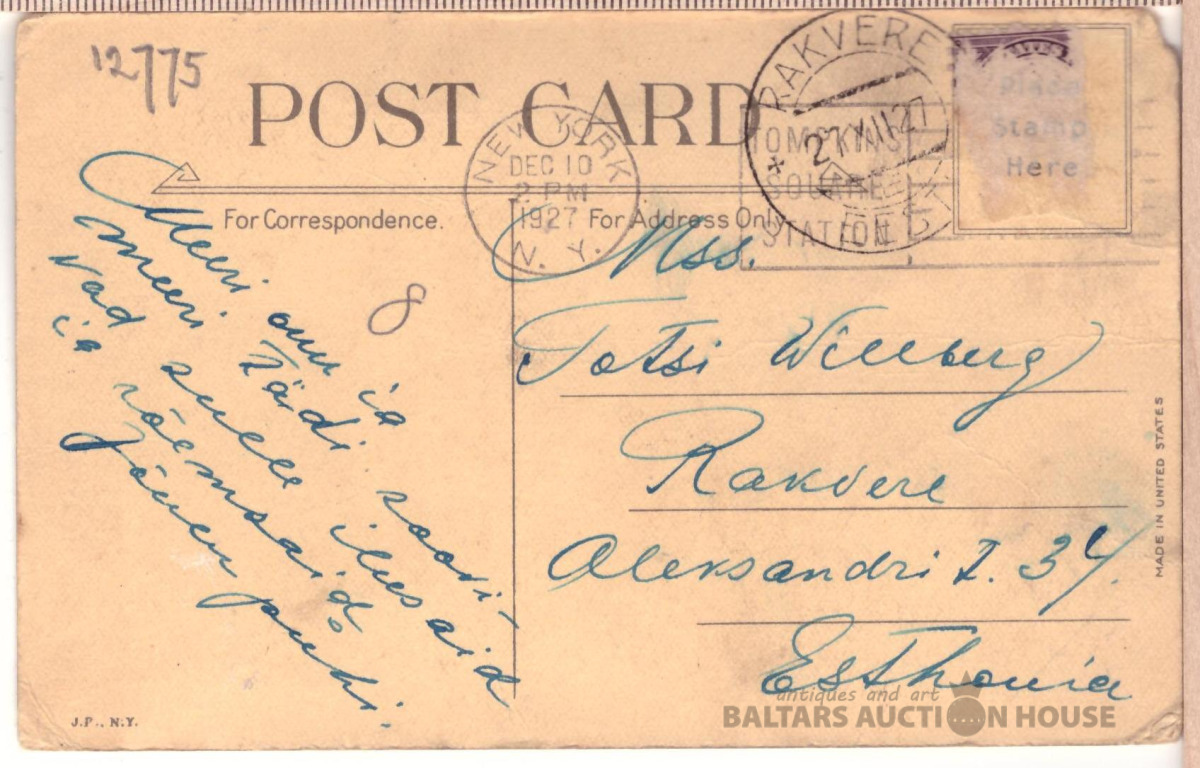 12775
POST CARD
NEW YORK
DEC 10
2 PM
1927
N. Y.
TOMPKINS
SQUARE
STATION
RAKVERE
27 XII 27
EESTI
Place
Stamp
Here
For Correspondence.
For Address Only.
8
Meeri onu ja
meeri Tädi soovi-
vad sulle ilusaid
ja rõemsaid
Jõuwu puhi.
Mss.
Totsi Willberg
Rakvere
Aleksandri t. 34.
Esthonia
MADE IN UNITED STATES
J.P., N.Y.
antiques and art
BALTARS AUCTION HOUSE